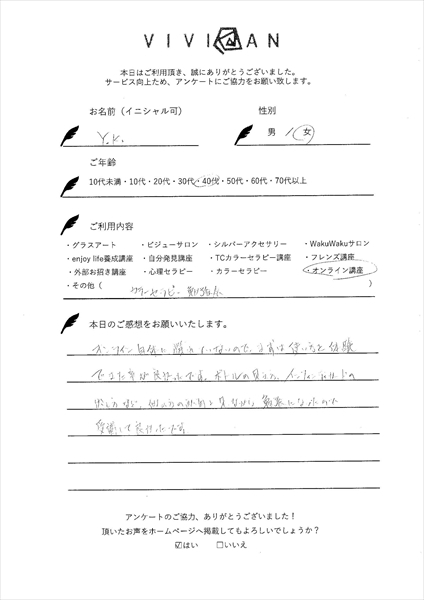 VIVIAN
本日はご利用頂き、誠にありがとうございました。
サービス向上ため、アンケートにご協力をお願い致します。
お名前（イニシャル可） 性別
Y.K. 男 / 女
ご年齢
10代未満・10代・20代・30代・40代・50代・60代・70代以上
ご利用内容
・グラスアート ・ビジューサロン ・シルバーアクセサリー ・WakuWakuサロン
・enjoy life養成講座 ・自分発見講座 ・TCカラーセラピー講座 ・フレンズ講座
・外部お招き講座 ・心理セラピー ・カラーセラピー ・オンライン講座
・その他（ カラーセラピー 勉強会 ）
本日のご感想をお願いいたします。
オンライン自体も慣れていないので、まずは使い方を体験
できた事が良かったです。ボトルの見え方、
方 見ながら なったので
受講して良かったです
アンケートのご協力、ありがとうございました！
頂いたお声をホームページへ掲載してもよろしいでしょうか？
☑はい □いいえ